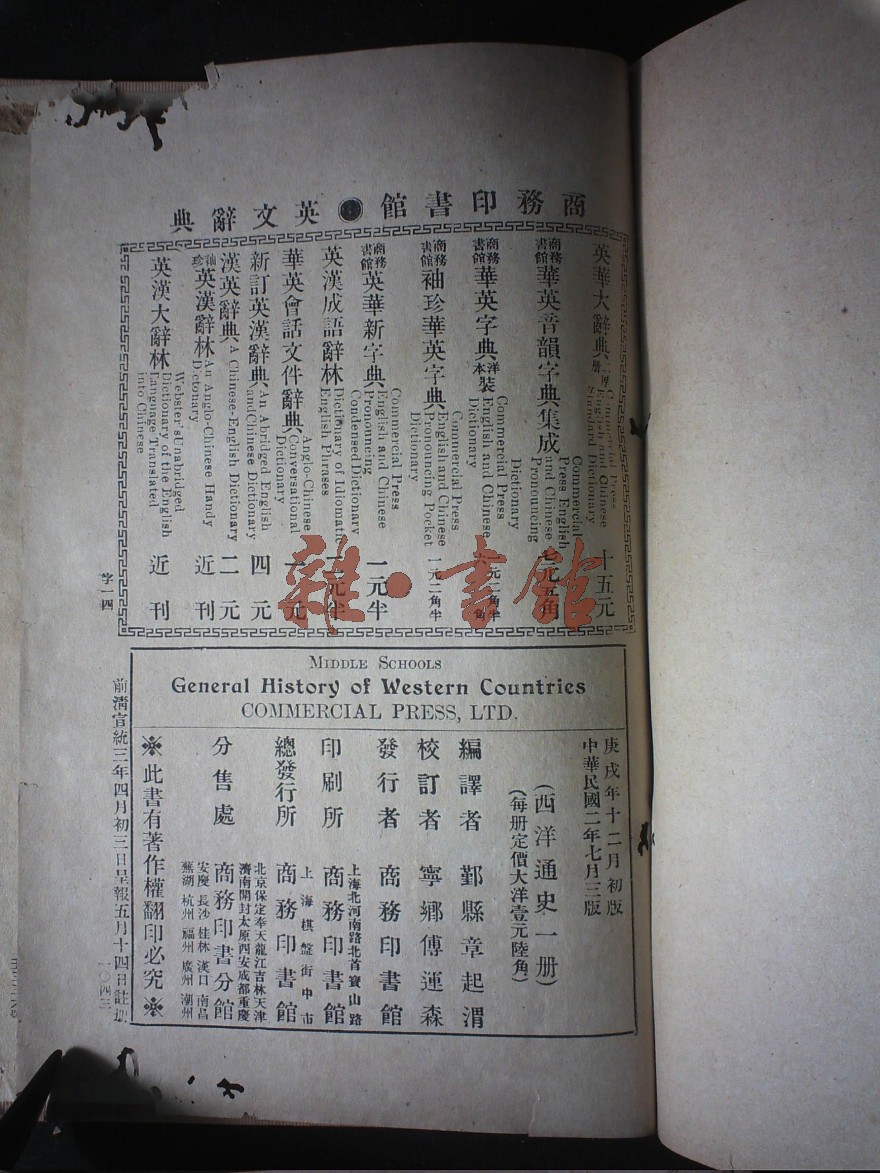 商務印書館 英文辭典
英華大辭典 二厚册 Commercial Press English and Chinese Standard Dictionary 十五元
商務書館 華英音韻字典集成 Commercial Press English and Chinese Pronouncing Dictionary 七元五角
商務書館 華英字典 洋裝本 Commercial Press English and Chinese Dictionary
商務書館 袖珍華英字典 Commercial Press English and Chinese Pronouncing Pocket Dictionary 一元二角半
商務書館 英華新字典 Commercial Press English and Chinese Pronouncing Condensed Dictionary 一元半
英漢成語辭林 Dictionary of Idiomatic English Phrases 二元半
華英會話文件辭典 Anglo-Chinese Conversational Dictionary 二元
新訂英漢辭典 An Abridged English and Chinese Dictionary 四元
漢英辭典 A Chinese-English Dictionary 二元
袖珍 英漢辭林 An Anglo-Chinese Handy Dctonary 近刊
英漢大辭林 Webster's Unabridged Dictionary of the English Language Translated into Chinese 近刊
字一四
雜·書館
MIDDLE SCHOOLS
General History of Western Countries
COMMERCIAL PRESS, LTD.
庚戌年十二月初版
中華民國二年七月三版
(西洋通史一册)
(每册定價大洋壹元陸角)
編譯者 鄞縣章起渭
校訂者 寧鄉傅運森
發行者 商務印書館
印刷所 上海北河南路北首寶山路 商務印書館
總發行所 上海棋盤街中市 商務印書館
分售處 北京保定奉天龍江吉林天津
濟南開封太原西安成都重慶
商務印書分館
安慶 長沙 桂林 漢口 南昌
蕪湖 杭州 福州 廣州 潮州
※此書有著作權翻印必究※
前清宣統三年四月初三日呈報五月十四日註
一〇四三